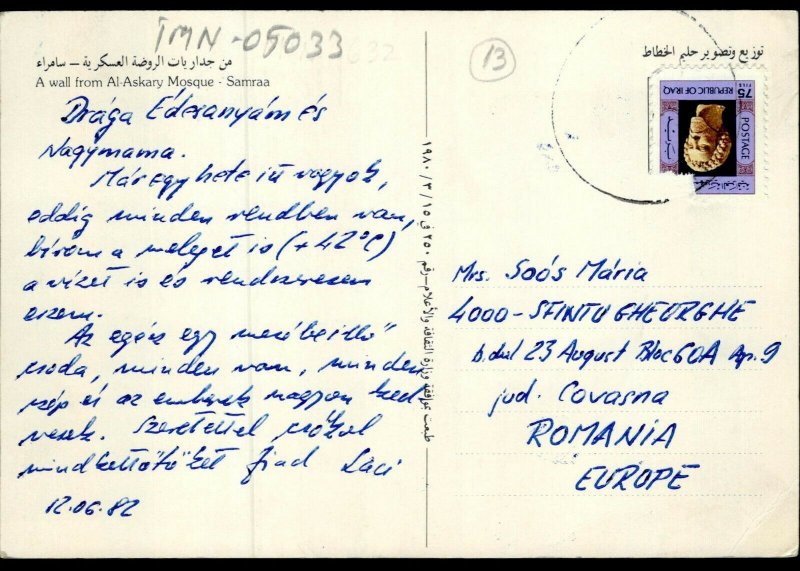 IMN-05033
13
من جداريات الروضة العسكرية – سامراء
A wall from Al-Askary Mosque - Samraa
توزيع وتصوير حليم الخطاط
75 FILS
REPUBLIC OF IRAQ
POSTAGE
Drága Édesanyám és
Nagymama.
Már egy hete itt vagyok,
eddig minden rendben van,
bírom a meleget is (+42°C)
a vizet is és rendszeresen
eszem.
Az egész egy mesébeillő
csoda, minden van, minden
szép és az emberek nagyon ked
vesek. Szeretettel csókol
mindkettőtöket fiad Laci
12.06.82
طبعت بموافقة وزارة الثقافة والأعلام – رقم ٢٥٠ في ١٩٨٠/٣/١٥
Mrs. Soós Mária
4000-SFINTU GHEORGHE
b.dul 23 August Bloc 60A Ap. 9
jud. Covasna
ROMANIA
EUROPE